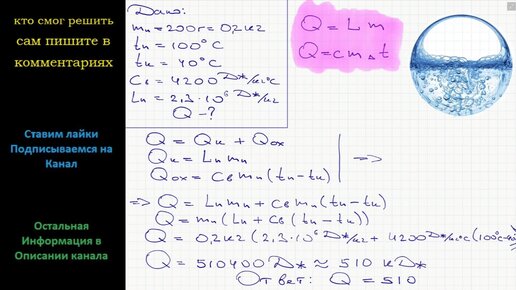 кто смог решить
сам пишите в
комментариях
Ставим лайки
Подписываемся на
Канал
Остальная
Информация в
Описании канала
Дано:
mп = 200г = 0,2 кг
tп = 100°C
tк = 40°C
Cв = 4200 Дж/кг°C
Lп = 2,3·10⁶ Дж/кг
Q - ?
Q = Lm
Q = cm△t
Q = Qк + Qох
Qк = Lпmп
Qох = Cвmп(tп-tк)
=>
=> Q = Lпmп + Cвmп(tп-tк)
Q = mп(Lп + Cв(tп-tк))
Q = 0,2кг(2,3·10⁶ Дж/кг + 4200 Дж/кг°C(100°C-40
Q = 510400 Дж ≈ 510 кДж
Ответ: Q = 510